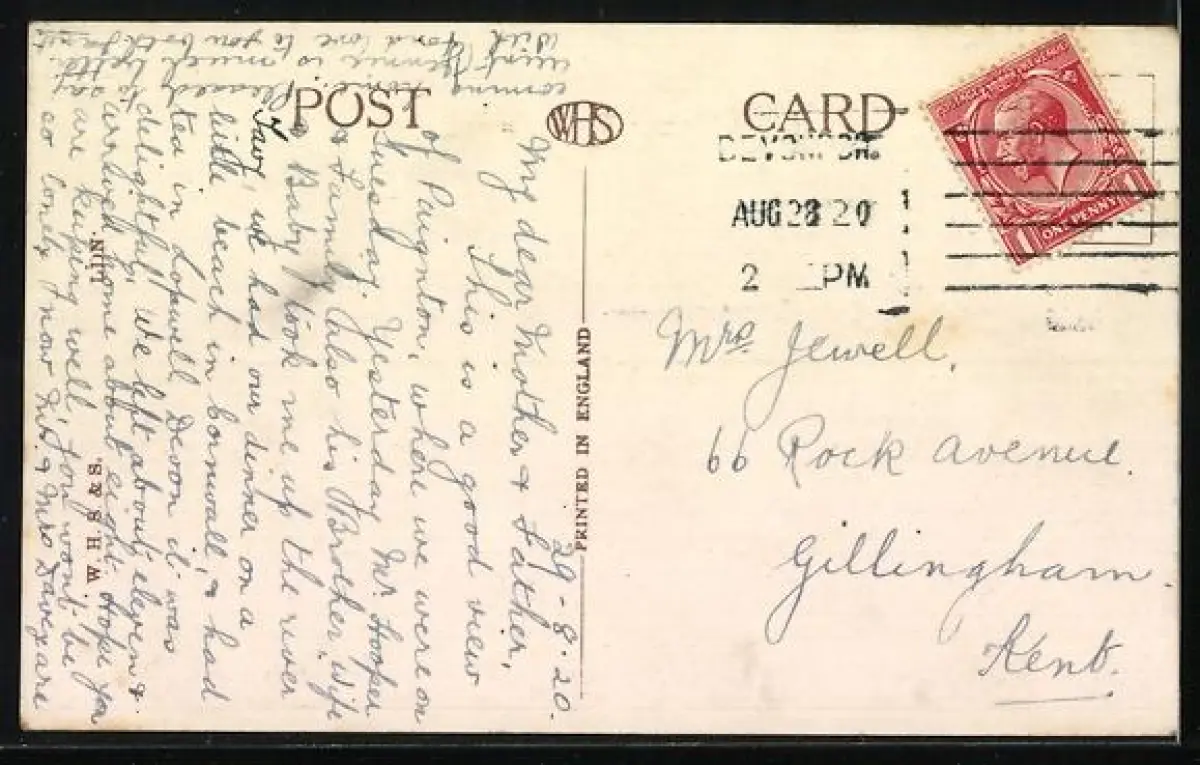 POST CARD
WHS
DEVONPORT
AUG 28 20
2 PM
ONE PENNY
1 1
Mrs Jewell,
66 Rock Avenue.
Gillingham.
Kent.
PRINTED IN ENGLAND
W. H. S. & S.
LON.
29-8-20.
My dear Mother & Father,
This is a good view
of Paignton, where we were on
Tuesday. Yesterday Mr Hooper
& Family also his Brother, Wife
& Baby took me up the river
Tavy, we had our dinner on a
little beach in Cornwall, & had
tea in Lopwell Devon it was
delightful, We left about eleven &
arrived home about eight. Hope you
are keeping well, you wont be
so lonely now Mr. & Mrs are
coming home. Pleased to say
is much better.
With fond love to you both